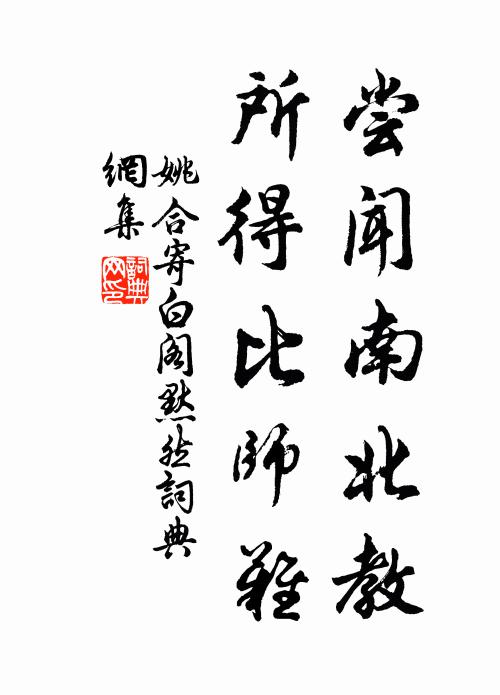 尝闻南北教
所得比师難
姚合寄白阁默然词典
網集
詞典
网印